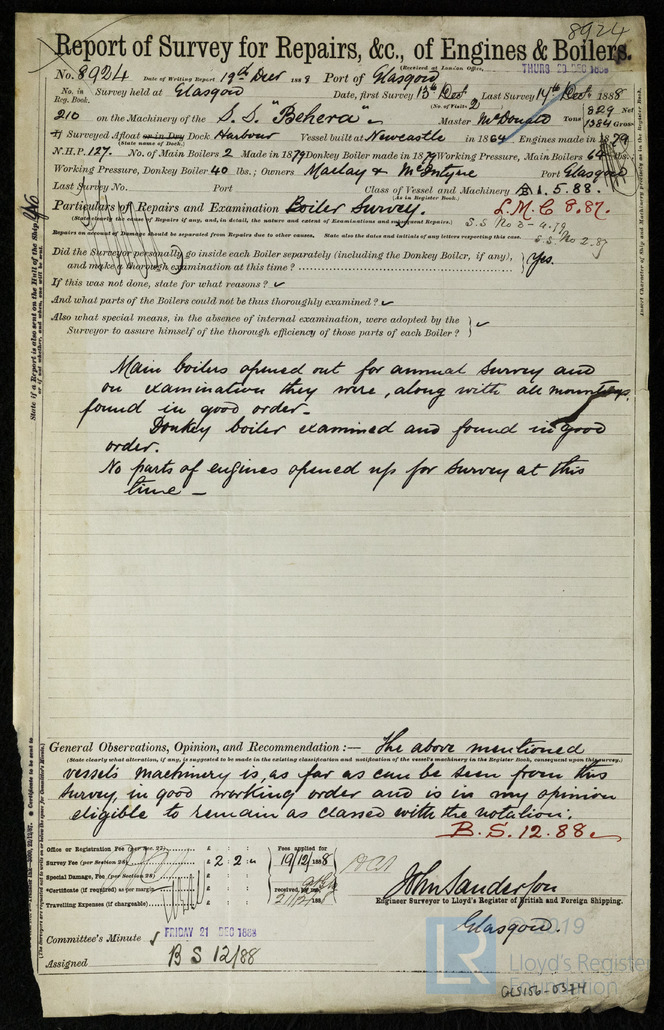 8924
Report of Survey for Repairs, &c., of Engines & Boilers.
(Received at London Office, THURS 20 DEC 1888
No. 8924 Date of Writing Report 19th Decr 1888 Port of Glasgow
No. in Reg. Book. Survey held at Glasgow Date, first Survey 13th Decr Last Survey 14th Decr 1888
(No. of Visits 2)
210 on the Machinery of the S.S. "Behera" Master McDonald Tons 829 Net 1384 Gross
Surveyed Afloat or in Dry Dock Harbour Vessel built at Newcastle in 1864 Engines made in 1879
(State name of Dock.)
N.H.P. 127. No. of Main Boilers 2 Made in 1879 Donkey Boiler made in 1879 Working Pressure, Main Boilers 64 lbs.;
Working Pressure, Donkey Boiler 40 lbs.; Owners Maclay & McIntyre Port Glasgow
Last Survey No. Port Class of Vessel and Machinery 1.5.88.
(As in Register Book.)
Particulars of Repairs and Examination Boiler Survey. L.M.C 8.87.
(State clearly the cause of Repairs if any, and, in detail, the nature and extent of Examinations and subsequent Repairs.) S.S No 3-4.79
Repairs on account of Damage should be separated from Repairs due to other causes. State also the dates and initials of any letters respecting this case. S.S. No 2.87
Did the Surveyor personally go inside each Boiler separately (including the Donkey Boiler, if any), and make a thorough examination at this time? Yes.
If this was not done, state for what reasons? ✓
And what parts of the Boilers could not be thus thoroughly examined? ✓
Also what special means, in the absence of internal examination, were adopted by the
Surveyor to assure himself of the thorough efficiency of those parts of each Boiler? ✓
Main boilers opened out for annual survey and
on examination they were, along with all mountings,
found in good order.
Donkey boiler examined and found in good
order.
No parts of engines opened up for survey at this
time —
General Observations, Opinion, and Recommendation :— The above mentioned
(State clearly what alteration, if any, is suggested to be made in the existing classification and notification of the vessel's machinery in the Register Book, consequent upon this survey.)
vessel's machinery is, as far as can be seen from this
survey, in good working order and is in my opinion
eligible to remain as classed with the notation.
B.S. 12.88.
Office or Registration Fee (per Sec. 27) £ : : Fees applied for
Survey Fee (per Section 28) £ 2 : 2 : 19/12/1888
Special Damage, Fee (per Section 28) £ : :
*Certificate (if required) as per margin £ : : received by me,
Travelling Expenses (if chargeable) £ : : 21/12/1888
John Sanderson
Engineer Surveyor to Lloyd's Register of British and Foreign Shipping.
Glasgow.
Committee's Minute FRIDAY 21 DEC 1888
Assigned B S 12/88
© 2019
LR Lloyd's Register
Foundation
GLS156-0374